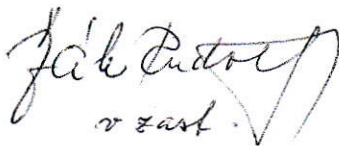 Žák Rudolf
v zast.